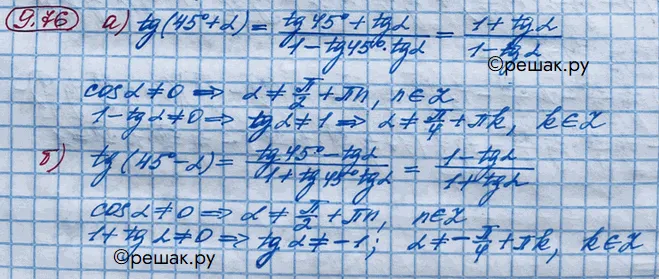 9.76 а) tg(45°+α) = (tg45°+tgα)/(1-tg45°·tgα) = (1+tgα)/(1-tgα)
©решак.ру
cosα≠0 ⇒ α≠π/2+πn, n∈Z
1-tgα≠0 ⇒ tgα≠1 ⇒ α≠π/4+πk, k∈Z
б) tg(45°-α) = (tg45°-tgα)/(1+tg45°tgα) = (1-tgα)/(1+tgα)
cosα≠0 ⇒ α≠π/2+πn, n∈Z
1+tgα≠0 ⇒ tgα≠-1; α≠-π/4+πk, k∈Z
©решак.ру